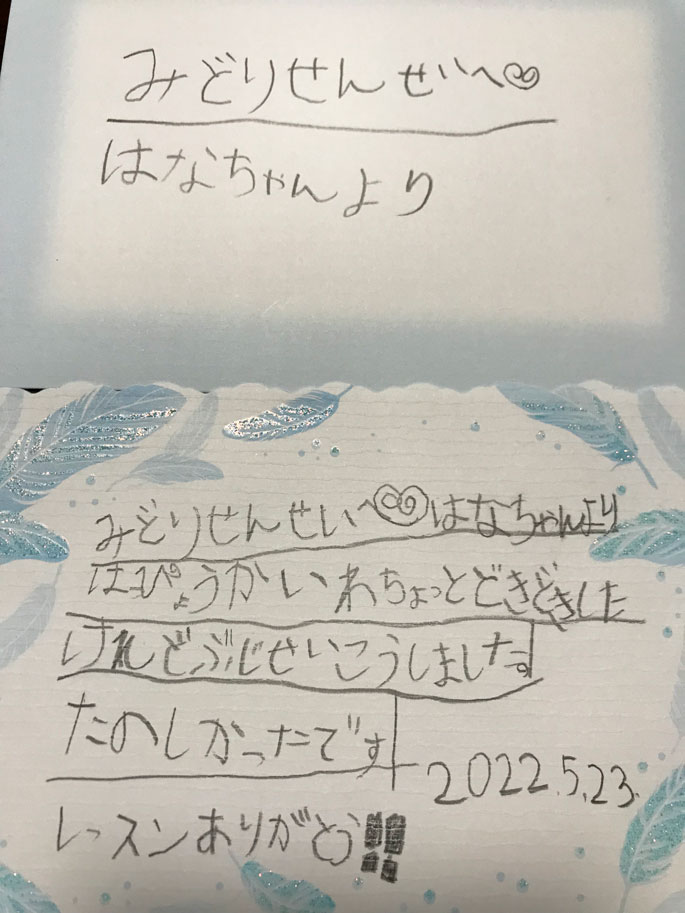 みどりせんせいへ
はなちゃんより
みどりせんせいへ はなちゃんより
はぴょうかいわちょっとどきどきした
けれどぶじせいこうしました。
たのしかったです
2022.5.23.
レッスンありがとう!!